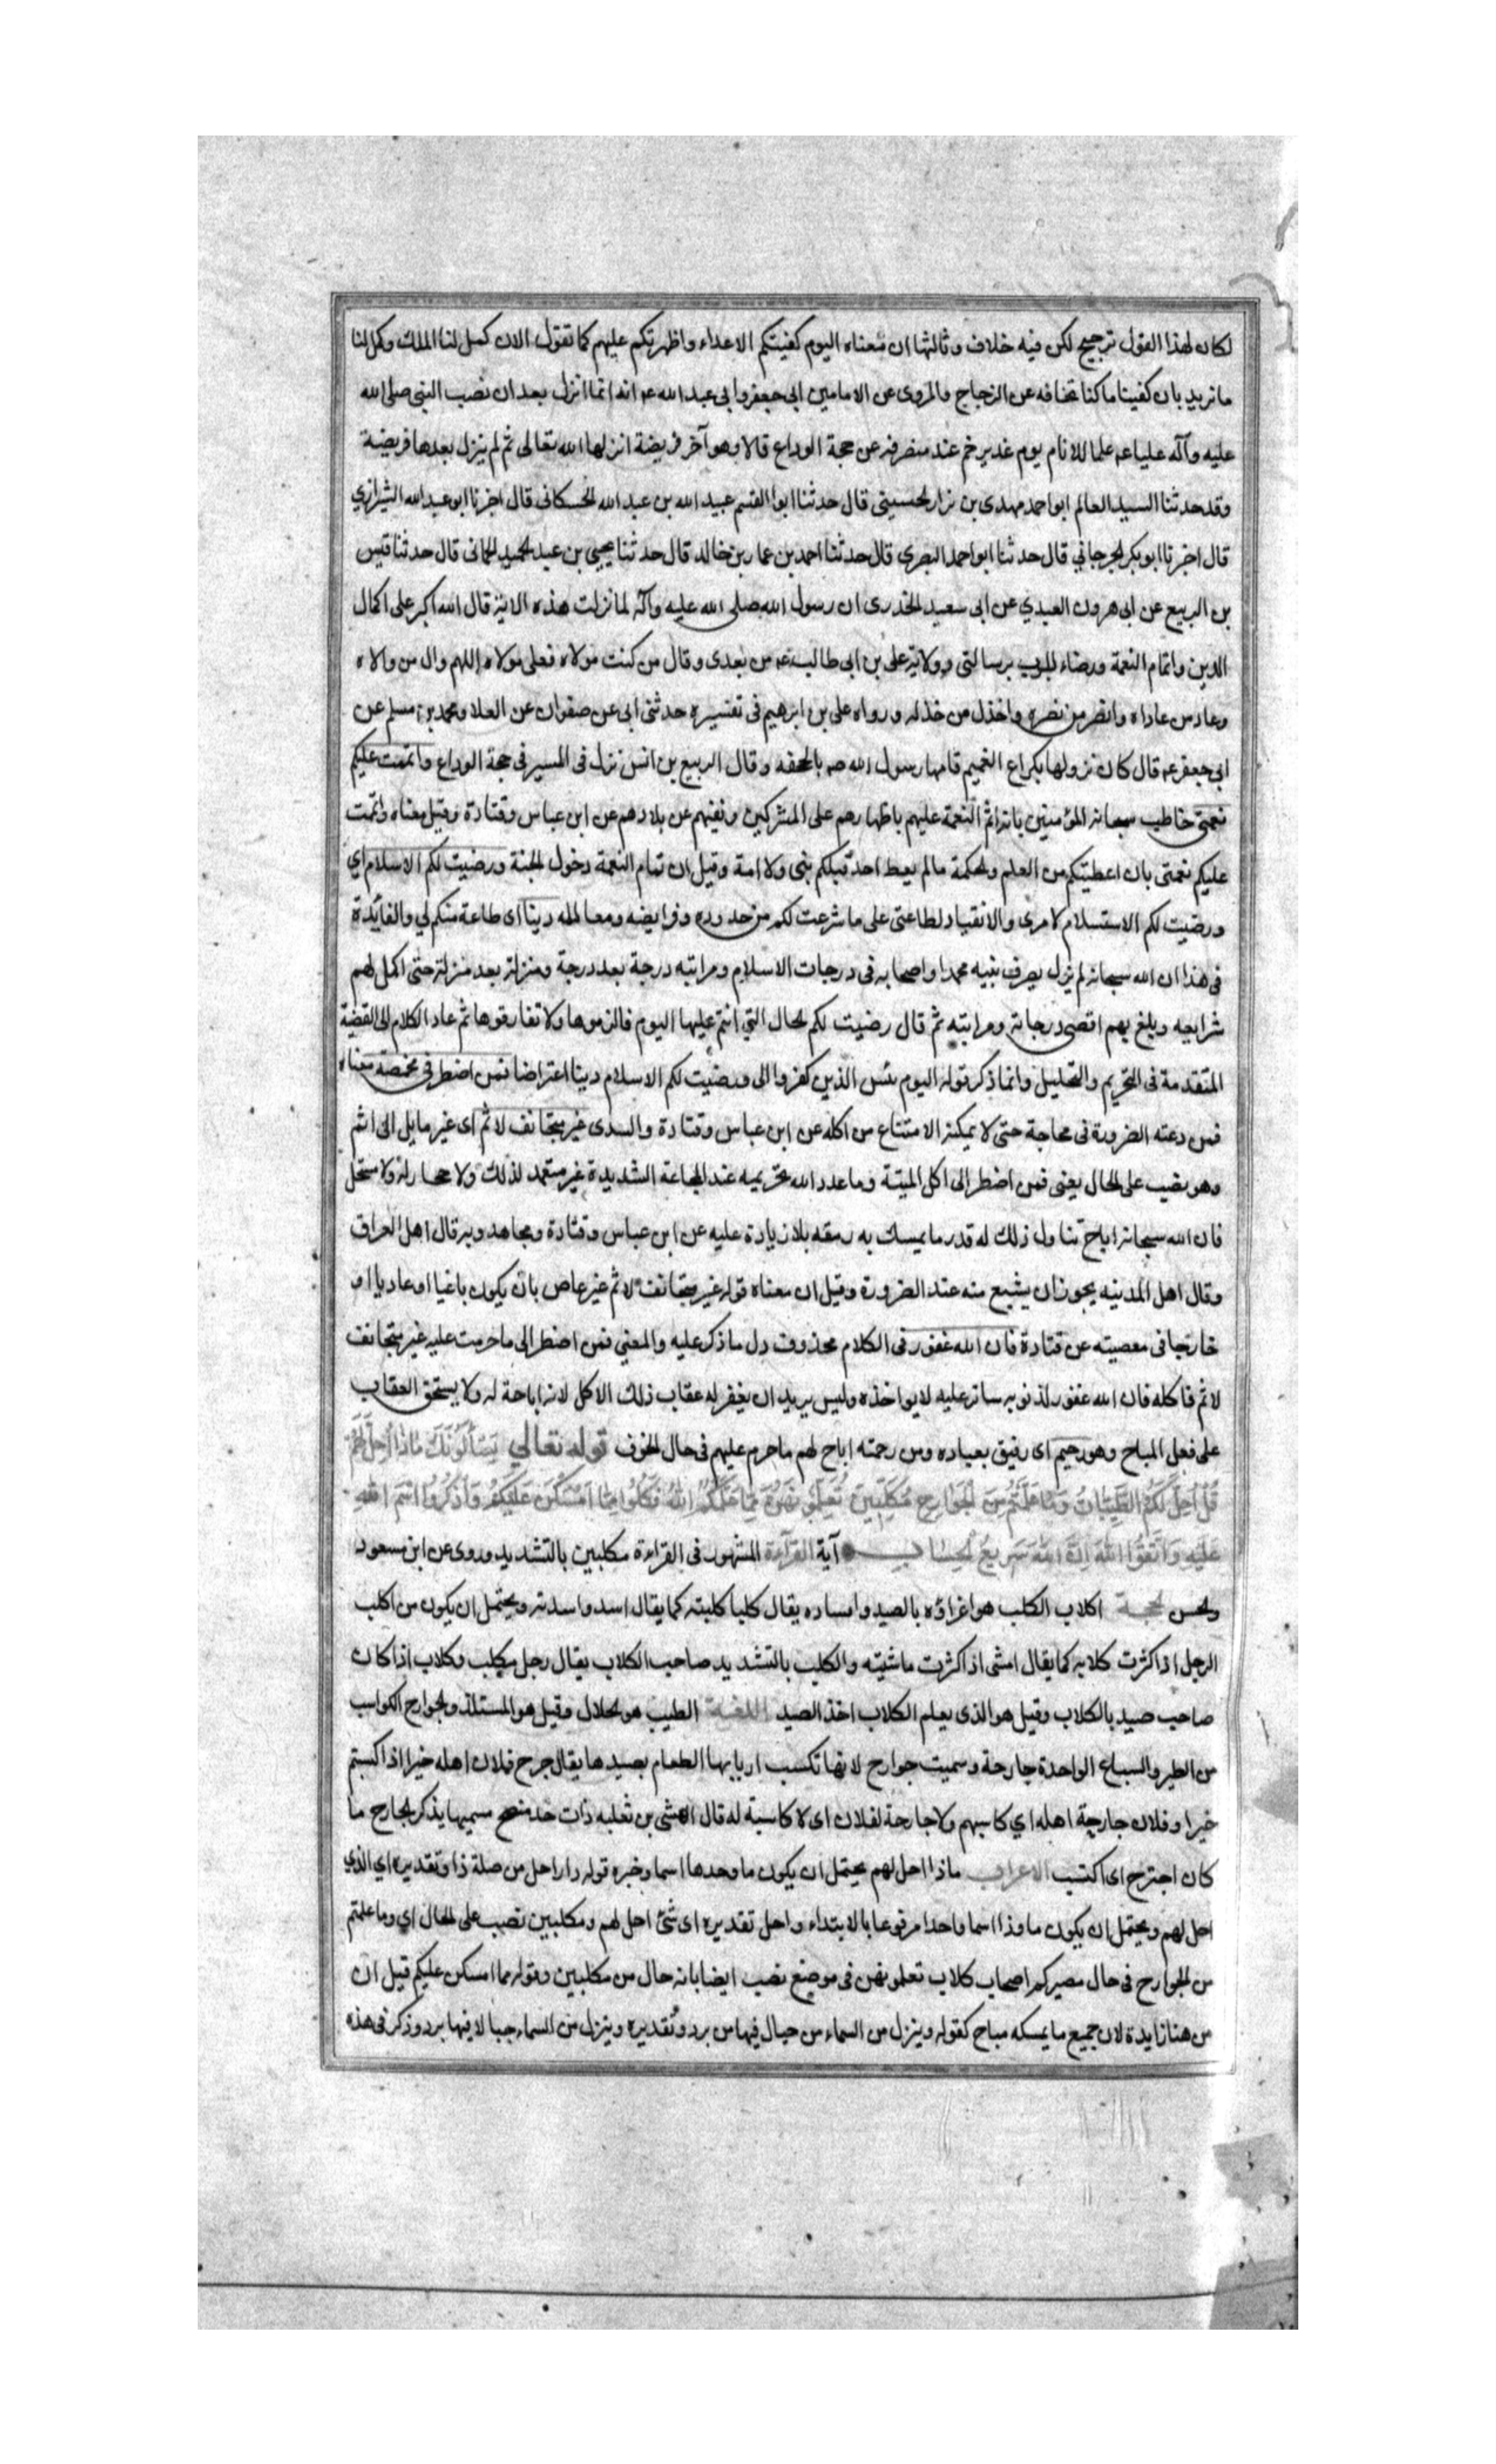 لكان لهذا القول ترجيح لكن فيه خلاف وثالثها ان معناه اليوم كفيتكم الاعداء واظهرتكم عليهم كما تقول الان كمل لنا الملك وكمل لنا
ما نريد بان كفينا ما كنا نخافه عن الزجاج والمروى عن الامامين ابى جعفر وابى عبد الله عه انه انما انزل بعد ان نصب النبى صلى الله
عليه وآله عليا عه علما للانام يوم غدير خم عند منصرفه عن حجة الوداع قالا وهو آخر فريضة انزلها الله تعالى ثم لم ينزل بعدها فريضة
وقد حدثنا السيد العالم ابو احمد مهدى بن نزار الحسينى قال حدثنا ابوا القسم عبيد الله بن عبد الله الحسكانى قال اخبرنا ابو عبد الله الشيرازي
قال اخبرنا ابو بكر الجرجاني قال حدثنا ابو احمد البصرى قال حدثنا احمد بن عمار بن خالد قال حدثنا يحيى بن عبد الحميد الحمانى قال حدثنا قيس
بن الربيع عن ابى هرون العبدي عن ابى سعيد الخدرى ان رسول الله صلى الله عليه وآله لما نزلت هذه الاية قال الله اكبر على اكمال
الدين واتمام النعمة ورضاء الرب برسالتى وولاية على بن ابى طالب عه من بعدى وقال من كنت مولاه فعلى مولاه اللهم وال من والاه
وعاد من عاداه وانصر من نصره واخذل من خذله ورواه على بن ابرهيم فى تفسيره حدثنى ابى عن صفوان عن العلا ومحمد بن مسلم عن
ابى جعفر عه قال كان نزولها بكراع الغميم قامها رسول الله صه بالجحفه وقال الربيع بن انس نزل فى المسير فى حجة الوداع واتممت عليكم
نعمتى خاطب سبحانه المؤمنين بانه اتم النعمة عليهم باظهارهم على المشركين ونفيهم عن بلادهم عن ابن عباس وقتادة وقيل معناه واتممت
عليكم نعمتى بان اعطيتكم من العلم والحكمة مالم يعط احد قبلكم نبى ولا امة وقيل ان تمام النعمة دخول الجنة ورضيت لكم الاسلام اي
ورضيت لكم الاستسلام لامرى والانقياد لطاعتى على ما شرعت لكم من حدوده وفرايضه ومعالمه دينا اى طاعة منكم لي والفائدة
فى هذا ان الله سبحانه لم يزل يصرف نبيه محمدا واصحابه فى درجات الاسلام ومراتبه درجة بعد درجة ومنزلة بعد منزلة حتى اكمل لهم
شرايعه وبلغ بهم اقصى درجاته ومراتبه ثم قال رضيت لكم الحال التي انتم عليها اليوم فالزموها ولا تفارقوها ثم عاد الكلام الى القضية
المتقدمة فى التحريم والتحليل وانما ذكر قوله اليوم يئس الذين كفروا الى ورضيت لكم الاسلام دينا اعتراضا فمن اضطر فى مخمصة معناه
فمن دعته الضرورة فى مجاجة حتى لا يمكنه الامتناع من اكله عن ابن عباس وقتادة والسدى غير متجانف لاثم اى غير مايل الى اثم
وهو نصب على الحال يعنى فمن اضطر الى اكل الميتة وما عدد الله تحريمه عند المجاعة الشديدة غير متعمد لذلك ولا مختار له ولا مستحل
فان الله سبحانه اباح تناول ذلك له قدر ما يمسك به رمقه بلا زيادة عليه عن ابن عباس وقتادة ومجاهد وبه قال اهل العراق
وقال اهل المدينه يجوز ان يشبع منه عند الضرورة وقيل ان معناه قوله غير متجانف لاثم غير عاص بان يكون باغيا او عاديا او
خارجا فى معصيته عن قتادة فان الله غفور فى الكلام محذوف دل ما ذكر عليه والمعني فمن اضطر الى ما حرمت عليه غير متجانف
لاثم فاكله فان الله غفور لذنوبه ساتر عليه لا يواخذه وليس يريد ان يغفر له عقاب ذلك الاكل لانه اباحة له ولا يستحق العقاب
على فعل المباح وهو رحيم اى رفيق بعباده ومن رحمته اباح لهم ما حرم عليهم فى حال الخوف قوله تعالى يَسْأَلُونَكَ مَاذَا أُحِلَّ لَهُمْ
قُلْ أُحِلَّ لَكُمُ الطَّيِّبَاتُ وَمَا عَلَّمْتُمْ مِنَ الْجَوَارِحِ مُكَلِّبِينَ تُعَلِّمُونَهُنَّ مِمَّا عَلَّمَكُمُ اللَّهُ فَكُلُوا مِمَّا أَمْسَكْنَ عَلَيْكُمْ وَاذْكُرُوا اسْمَ اللَّهِ
عَلَيْهِ وَاتَّقُوا اللَّهَ إِنَّ اللَّهَ سَرِيعُ الْحِسَابِ آية القراءة المشهور فى القراءة مكلبين بالتشديد وروى عن ابن مسعود
والحسن الحجة اكلاب الكلب هو اغراؤه بالصيد وامساده يقال كلبا كلبته كما يقال اسد واسدته ويحتمل ان يكون من اكلب
الرجل اذا كثرت كلابه كما يقال امشى اذا كثرت ماشيته والكليب بالتشديد صاحب الكلاب يقال رجل مكلب وكلاب اذا كان
صاحب صيد بالكلاب وقيل هو الذى يعلم الكلاب اخذ الصيد اللغة الطيب هو الحلال وقيل هو المستلذ والجوارح الكواسب
من الطير والسباع الواحدة جارحة وسميت جوارح لانها تكسب اربابها الطعام بصيدها يقال جرح فلان اهله خيرا اذا اكسبهم
خيرا وفلان جارحة اهله اي كاسبهم ولا جارحة لفلان اى لا كاسبة له قال اعشى بن ثعلبه ذات خد منضج ميسمها يذكر الجارح ما
كان اجترح اى اكتسب الاعراب ماذا احل لهم يحتمل ان يكون ما وحدها اسما وخبره قوله ذا واحل من صلة ذا وتقديره اي الذي
احل لهم ويحتمل ان يكون ما وذا اسما واحدا مرفوعا بالابتداء واحل تقديره اى شئ احل لهم ومكلبين نصب على الحال اي وما علمتم
من الجوارح فى حال مصيركم اصحاب كلاب تعلمونهن فى موضع نصب ايضا بانه حال من مكلبين وقوله مما امسكن عليكم قيل ان
من هنا زايدة لان جميع ما يمسكه مباح كقوله وينزل من السماء من جبال فيها من برد وتقديره وينزل من السماء جبالا فيها برد وذكر فى هذه